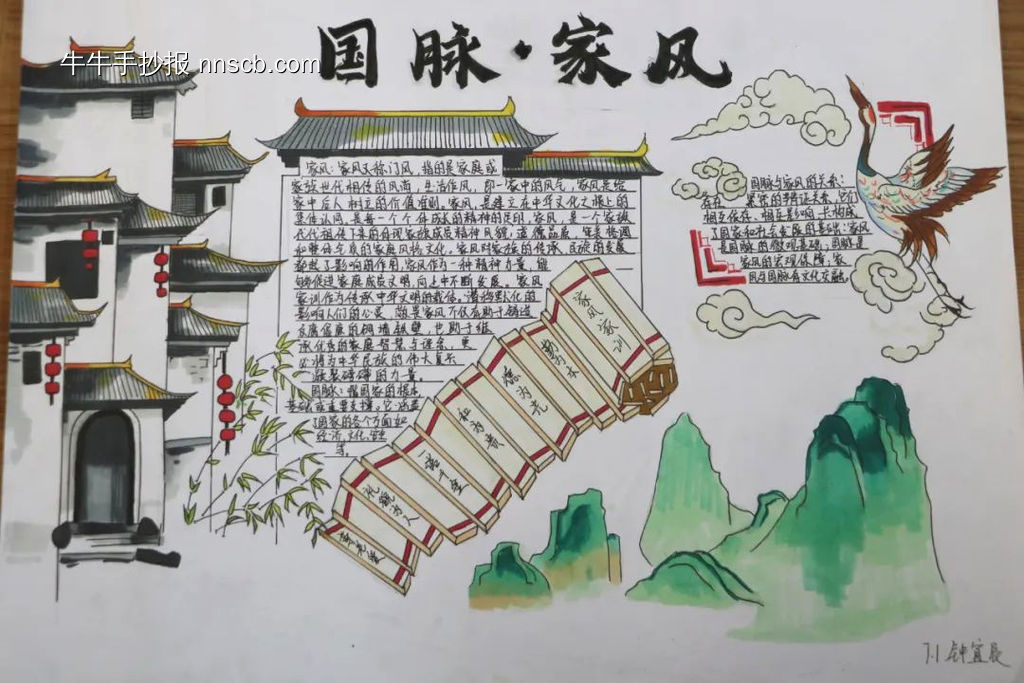 国脉·家风
牛牛手抄报 nnscb.com
家风:家风又称门风,指的是家庭或
家族世代相传的风尚,生活作风,即一家中的风气,家风是给
家中后人树立的价值准则。家风,是建立在中华文化之根上的
集体认同,是每一个个体成长的精神的足印,家风,是一个家族
代代相传下来的体现家族成员精神风貌,道德品质,
和整体气质的家庭风格文化。家风对家族的传承,民族的发展
都起了影响的作用,家风作为一种精神力量,能
够促进家庭成员文明,向上不断发展。家风
家训作为传承中华文明的载体。潜移默化的
影响人们的心灵,
的铜墙铁壁,也助于
家庭智慧与理念,更
必将为中华民族的伟大复兴
凝聚磅礴的力量。
国脉:指国家的根本
基础或重要支撑。它涵盖
了国家的各个方面如
经济,文化,
等。
家风家训
勤为本
德为先
和为贵
一诺千金
国脉与家风的关系:
存在 紧密的辩证关系,它们
相互依存、相互影响,共同构成
了国家和社会发展的基础。家风
是国脉的微观基础,国脉是
家风的宏观保障,家
风与国脉有文化交融。
7.1 钟宜辰